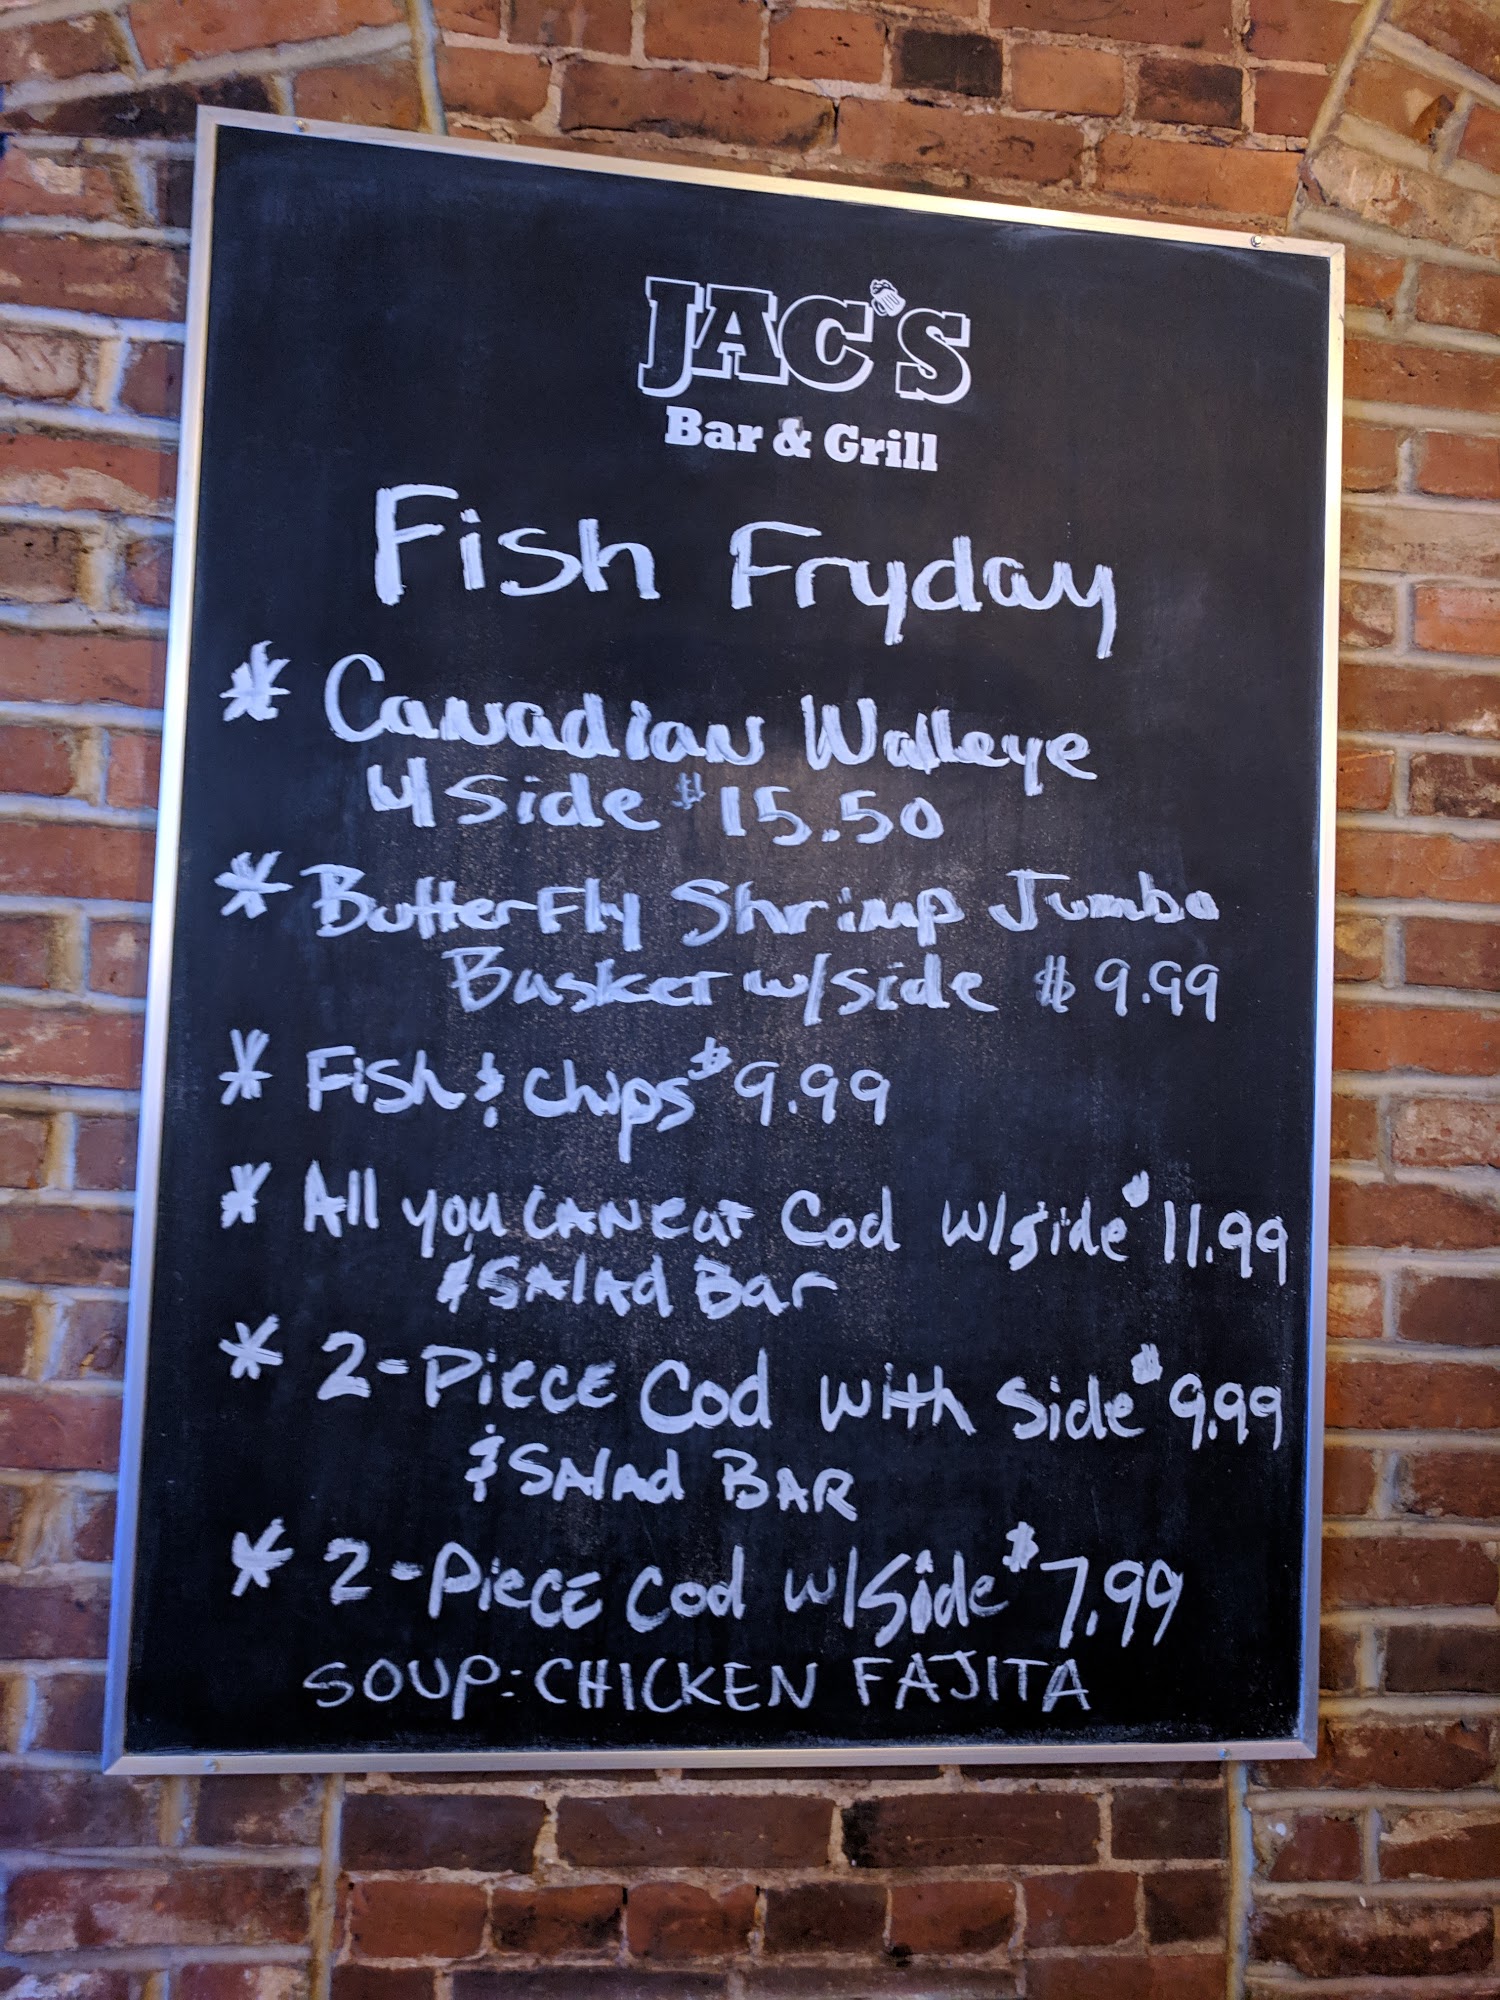 JAC'S
Bar & Grill
Fish Fryday
* Canadian Walleye
4 Side $15.50
* ButterFly Shrimp Jumbo
Basket w/side $9.99
* Fish & Chips $9.99
* All you CAN eat Cod w/side $11.99
& SAlAd Bar
* 2-Piece Cod with Side $9.99
& SAlAd BAR
* 2-Piece Cod w/Side $7.99
SOUP: CHICKEN FAJITA